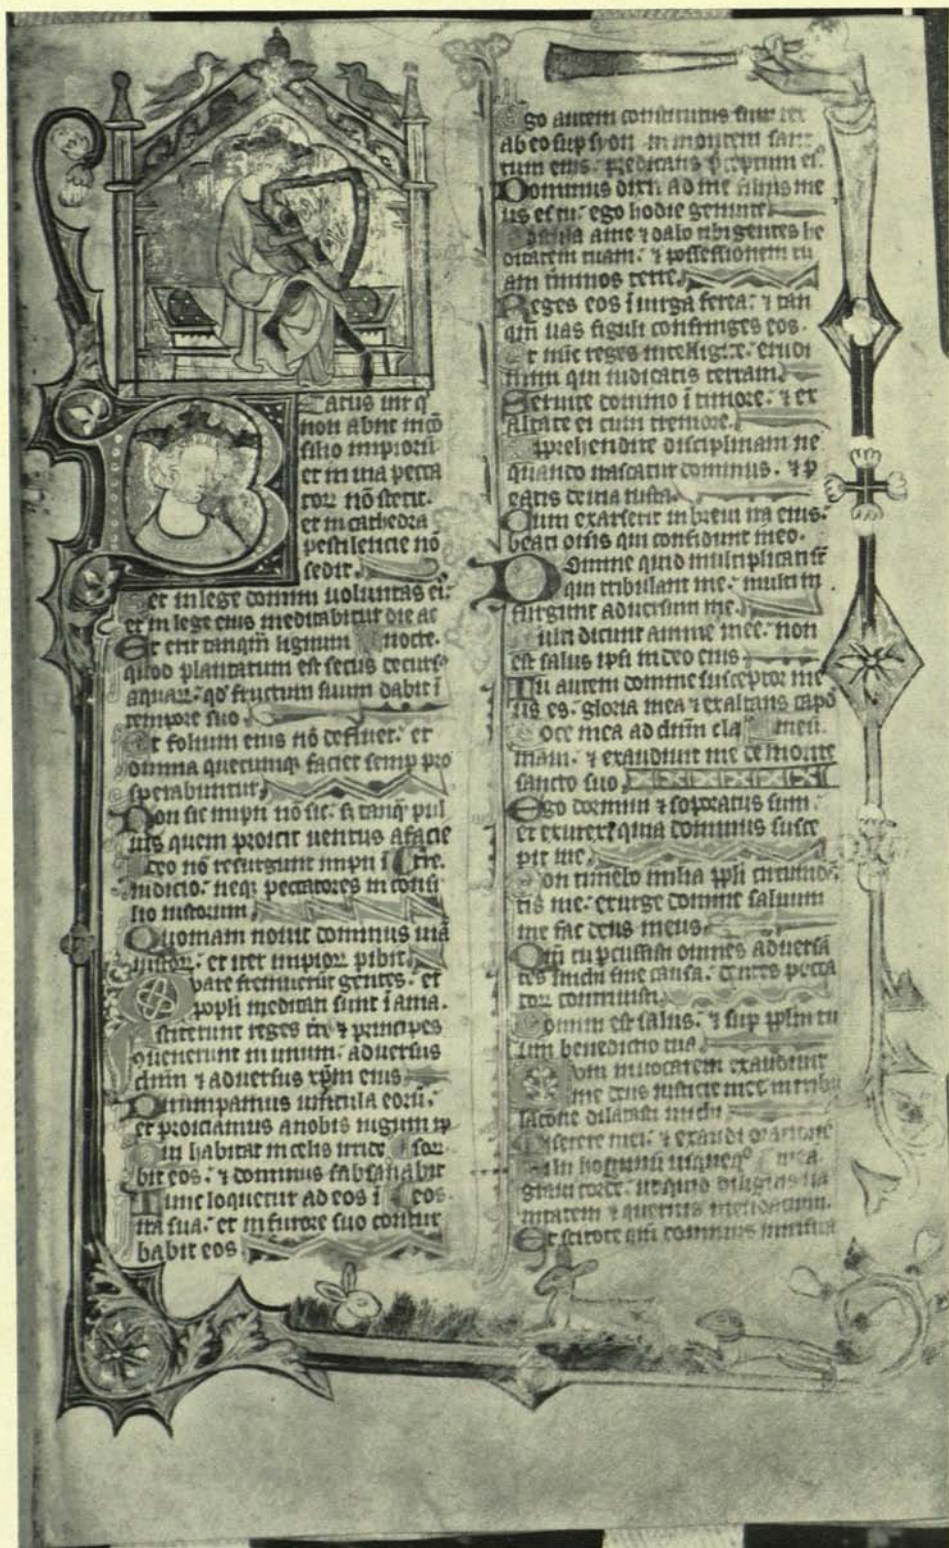 Beatus uir q̄
non abiit in cō
silio impiorū
et in uia pecca
torꝝ nō stetit.
et in cathedra
pestilencie nō
sedit.
Set in lege domini uoluntas ei:
et in lege eius meditabitur die ac
Et erit tanqm̄ lignum nocte.
quod plantatum est secus decurs
aquaꝝ. qd̄ fructum suum dabit ī
tempore suo.
Et folium eius nō defluet. et
omnia quecumqꝫ faciet semp pro
sperabuntur.
Non sic impii nō sic. s̄ tanq̄ pul
uis quem proicit uentus afacie
Ideo nō resurgunt impii ī terre.
iudicio. neqꝫ peccatores in consi
lio iustorum.
Quoniam nouit dominus uiā
iustoꝝ. et iter impioꝝ pibit.
Quare fremuerunt gentes. et
popli meditati sunt īania.
Astiterunt reges tr̄e ⁊ principes
conuenerunt in unum. aduersus
dnm̄ ⁊ aduersus xpm̄ eius
Dirumpamus uincula eorū.
et proiciamus anobis iugum ip
Qui habitat in celis irride soꝝ
bit eos. ⁊ dominus subsanabit
Tunc loquetur ad eos ī eos
ira sua. et in furore suo contur
babit eos
Ego autem constitutus sum rex
ab eo sup syon in montem sanc
tum eius. predicans p̄ceptum ei
Dominus dixit ad me filius me
us es tu. ego hodie genui te
Postula a me ⁊ dabo tibi gentes he
ditatem tuam. ⁊ possessionem tu
am t̄minos terre.
Reges eos ī uirga ferea. ⁊ tan
qm̄ uas figuli confringes eos.
Et nūc reges intelligite. erudi
mini qui iudicatis terram.
Seruite domino ī timore. ⁊ ex
altate ei cum tremore.
Apprehendite disciplinam ne
quando irascatur dominus. ⁊ p
eatis de uia iusta.
Cum exarserit in breui ira eius.
beati om̄s qui confidunt ī neo.
Domine quid multiplicati st̄
qui tribulant me. multi in
surgunt aduersum me.
Multi dicunt anime mee. non
est salus ipsi in deo eius
Tu autem domine susceptor me
us es. gloria mea ⁊ exaltans capd
Uoce mea ad dnm̄ cla meū.
maui. ⁊ exaudiuit me de monte
sancto suo
Ego dormiui ⁊ soporatus sum.
et exurexi quia dominus susce
pit me.
Non timebo milia ppli circund
tis me. exurge domine saluum
me fac deus meus.
Qm̄ tu pcussisti omnes aduersā
tes michi sine causa. dentes pecca
torꝝ contriuisti
Domini est salus. ⁊ sup pplm tu
um benedictio tua.
Cum inuocarem exaudiuit
me deus iusticie mee. in tribu
lacione dilatasti michi
Miserere mei. ⁊ exaudi orationē
Filii hominū usquequo mea
graui corde. ut quid diligitis ua
nitatem ⁊ queritis mendacium.
Et scitote qm̄ dominus